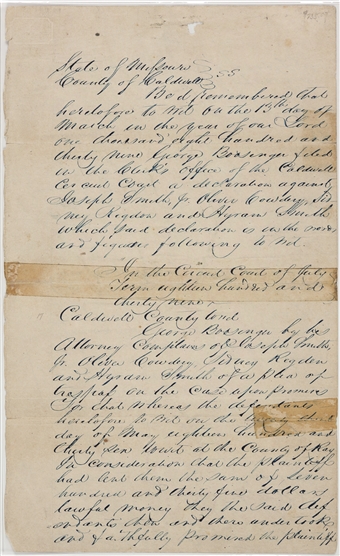 State of Missouri
County of Caldwell SS
Be it remembered that
heretofore to wit on the 13th day of
March in the year of our Lord
one thousand eight hundred and
thirty nine George Bosenger filed
in the Clerks office of the Caldwell
Circuit Court a declaration against
Joseph Smith, Jr. Oliver Cowdery, Sid
ney Rigdon and Hyrum Smith
which said declaration is in the words
and figures following to wit.
In the Circuit Court of July
Term eighteen hundred and
thirty nine
Caldwell County towit
George Bosenger by his
Attorney Complains of Joseph Smith,
Jr. Oliver Cowdery, Sidney Rigdon
and Hyrum Smith of a plea of
trespass on the case upon promises
For that whereas the defendants
heretofore to wit on the
day of May eighteen hundred and
thirty Six towit at the County of Ray
In consideration that the plaintiff
had lent them the sum of Seven
hundred and thirty five dollars
lawful money they the said def
endants then and there undertook
and faithfully promised the plaintiff